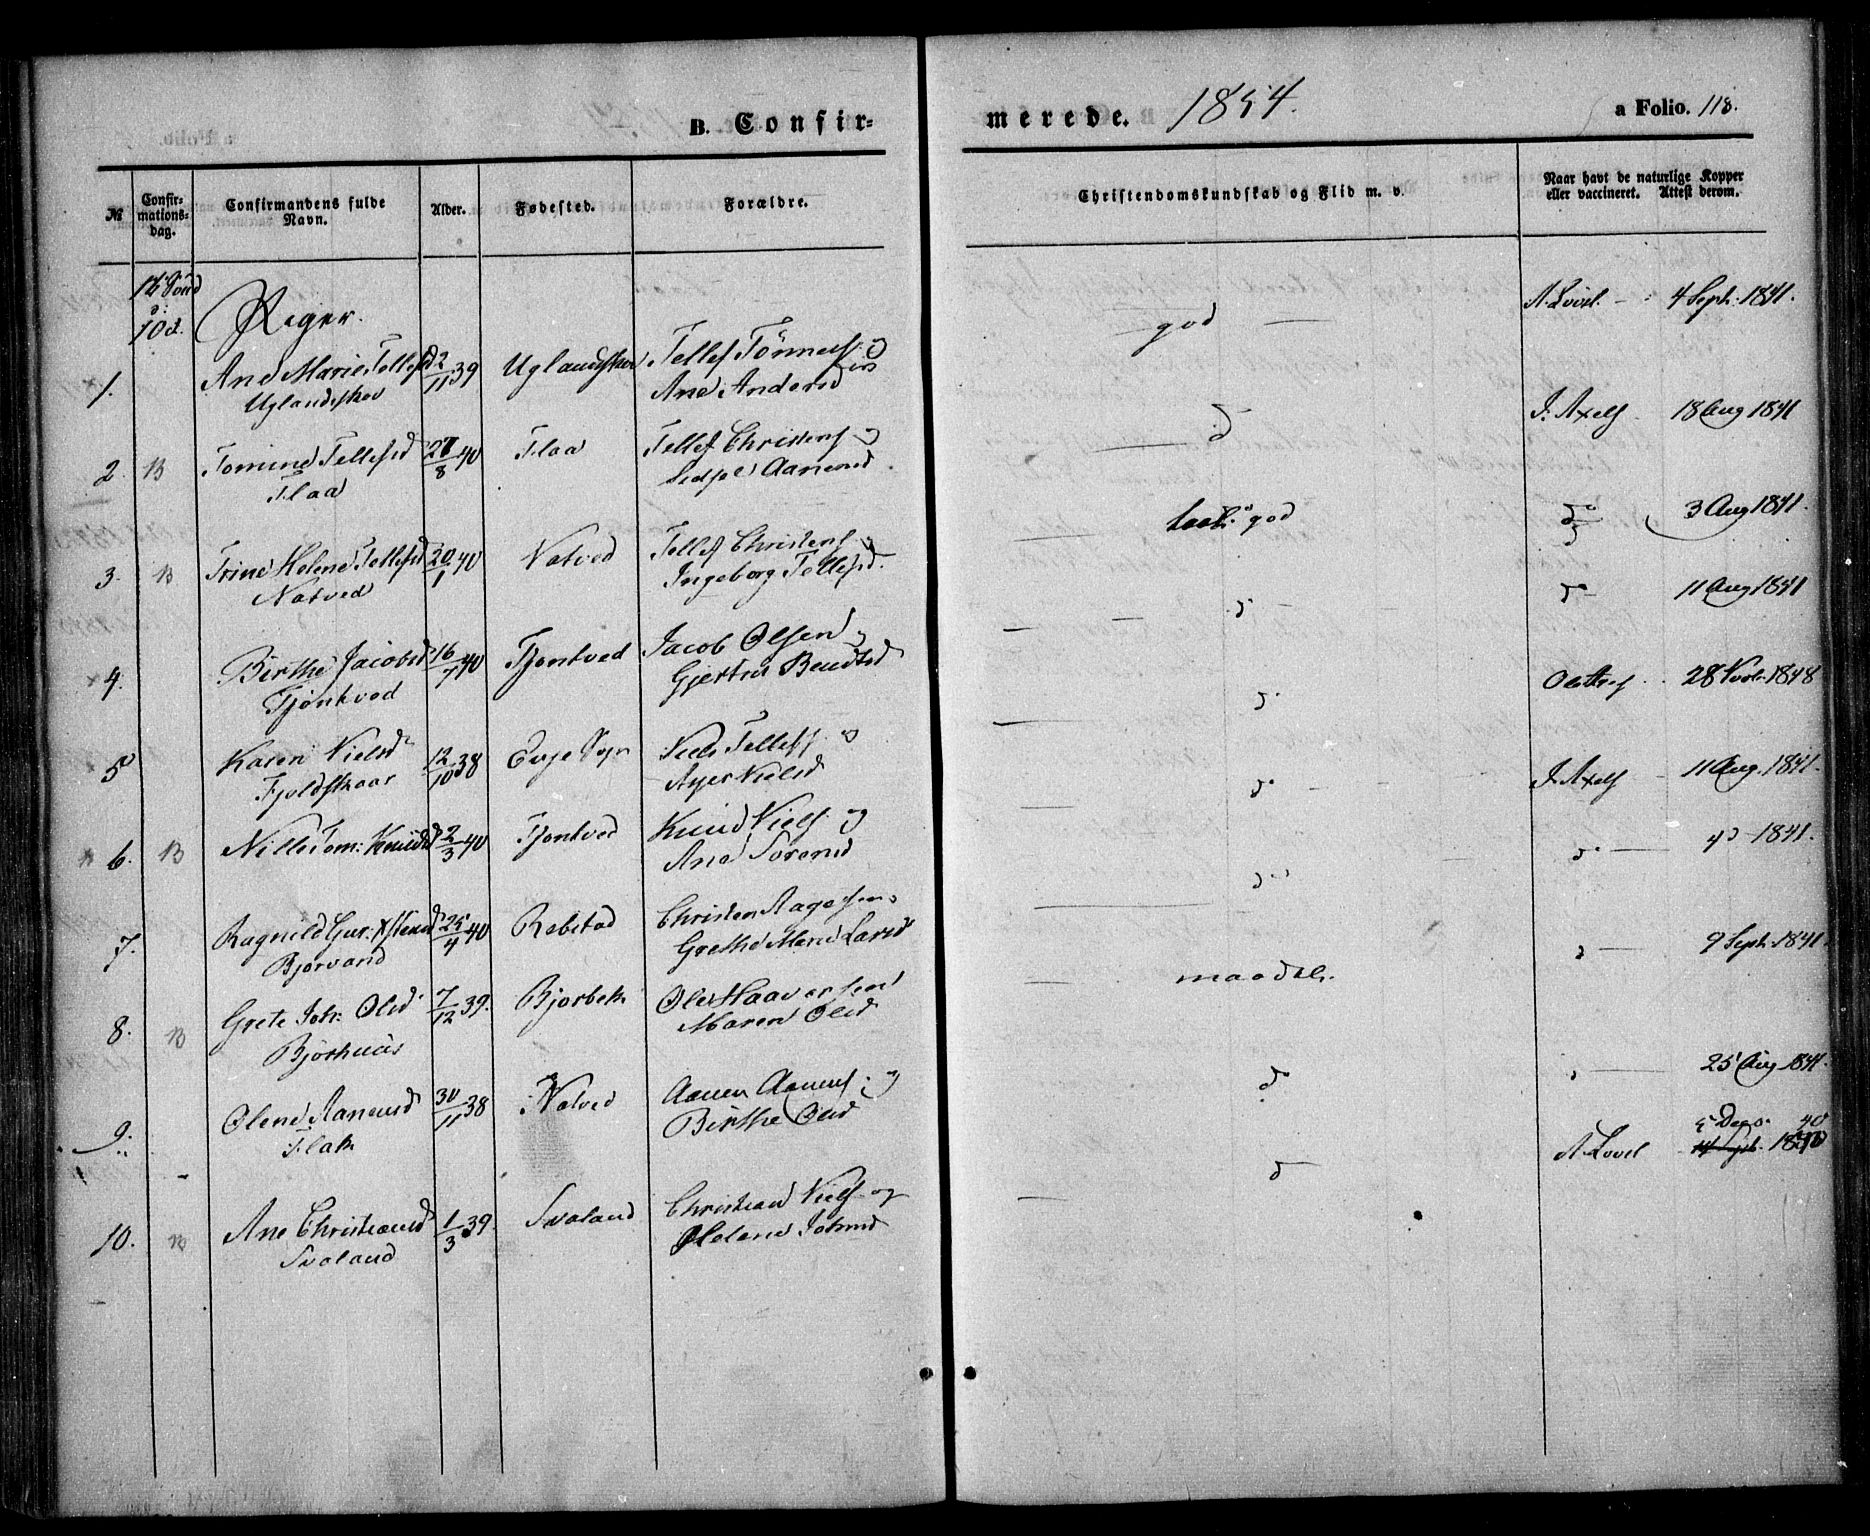 B. Confir-
merede. 1854.
a Folio. 118.
№
Confir-
mations-
dag.
Confirmandens fulde
Navn.
Alder.
Fødested.
Forældre.
Christendomskundskab og Flid m. v.
Naar havt de naturlige Kopper
eller vaccineret. Attest derom.
16 Sönd
10d.
Piger.
1.
Ane Marie Tellefsd
Uglandskov
2/11 39
Uglandskov
Tellef Tönnesf. og
Ane Andersd
god
A Lovel - 4 Sept: 1841.
2. B
Tomine Tellefsd
Flaa
27/8 40
Flaa
Tellef Christenf og
Sedsel Aanensd
d
J. Axelf - 18 Aug 1841
3. B
Trine Helene Tellefsd
Natved
20/1 40
Natved
Tellef Christenf og
Ingeborg Tellefsd.
god
do 3 Aug 1841.
4.
Birthe Jacobsd
Tjöntved
16/7 40
Tjontved
Jacob Olsen og
Gjertru Bendtsd
d
do 11 Aug 1841
5
Karen Nielsd
Fjeldskaar
12/10 38
Evje Sogn
Niels Tellefs. o
Nielsd
d
28 Novb. 1848
6. B
Nille Tom: Knudsd
2/3 40
Tjontved
Knud Nielf og
Ane Sorensd
do
J. Axelf - 11 Aug. 1841.
7.
Ragnild Gur:
Bjorvand
25/4 40
Rebstad
Christen Aagesen o
Grethe Marie Larsd
do
do 1841.
8. B
Grete Joh: Olsd
Bjorhuus
7/12 39.
Bjorbek
Ole Haaversen
Maren Olsd
maadel.
d 9 Sept. 1841.
9.
Olene Aanensd
Flak
30/11 38
Natved
Aanen Aanensf: og
Birthe Olsd
do
25 Aug 1841.
10. B
Ane Christiansd
Svaland
1/3 39.
Svaland
Christian Nielf og
Helene Johnsd
d
A Lovel
5 Dec. 40
14 Sept. 1840